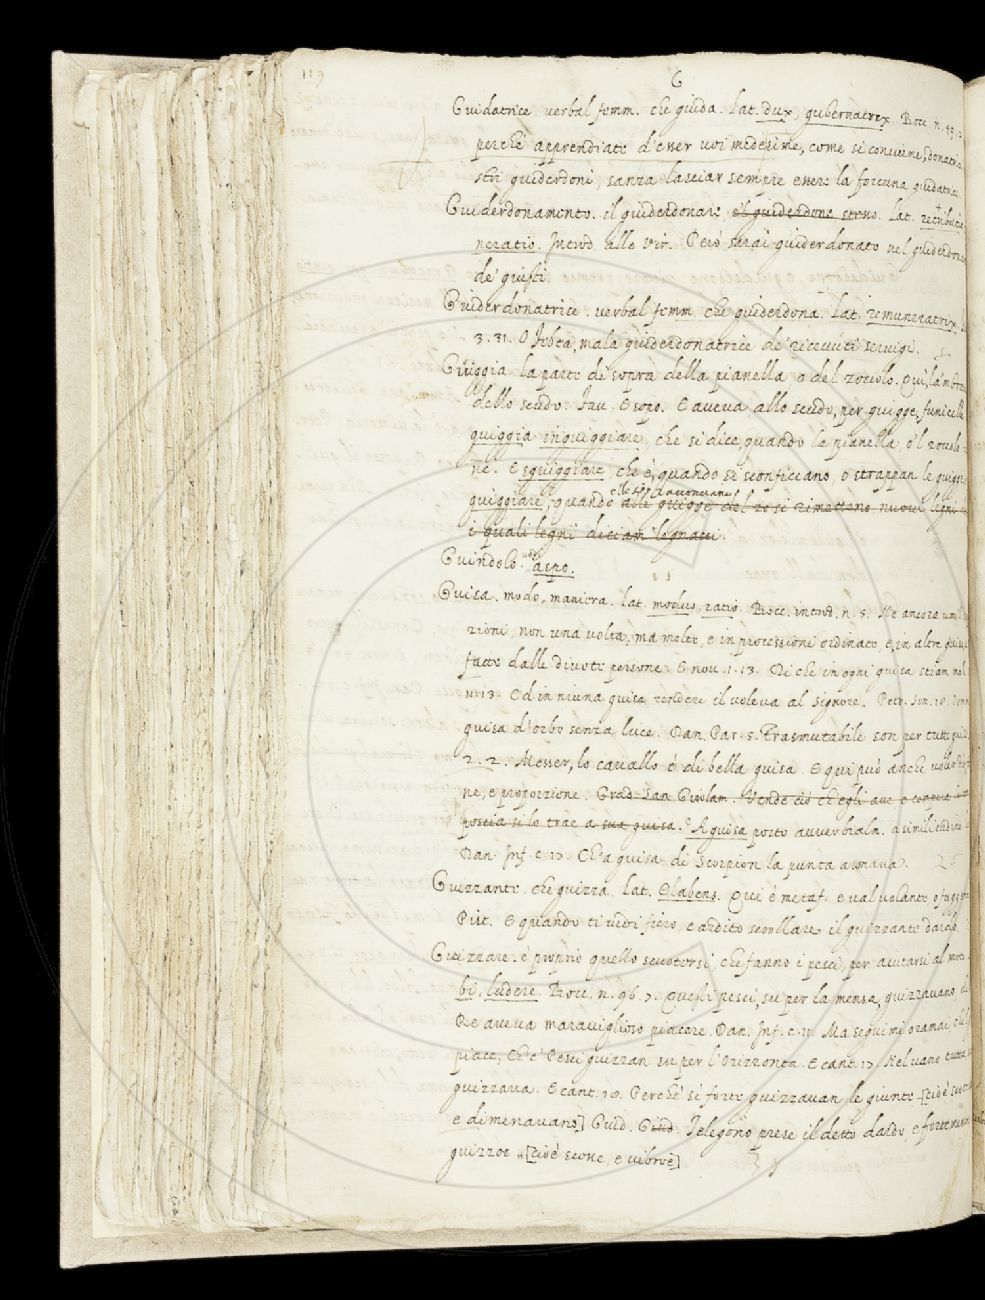 119
G
Guidatrice. verbal femm. che guida. Lat. dux, gubernatrex. Bocc. n. 45.
perche apprendiate d'esser voi medesime, come si conviene, donatri
stri guiderdoni, sanza lasciar sempre essere la fortuna guidatrice
Guiderdonamento. il guiderdonare, e'l guiderdone stesso. lat. retributio
neratio. Introd. alle vir. Però sarai guiderdonato nel guiderdone
de' giusti.
Guiderdonatrice. verbal femm. che guiderdona. lat. remuneratrix.
3. 31. O Iobea, mala guiderdonatrice de' ricevuti servigi.
Guiggia. la parte di sopra della pianella, o del zoccolo. Qui, la'mbra
dello scudo. Fav. Esopo. E aveva allo scudo, per guigge, funicelle
guiggia inguiggiare, che si dice, quando la pianella, o'l zoccolo
ne. E sguiggiare che è, quando si sconficcano, o strappan le guigg
guiggiare, quando alle guigge del zo si rimettono nuovi legni
i quali legni diciam legnacci.
Guindolo. aspo.
Guisa. modo, maniera. lat. modus, ratio. Bocc. introd. n. 5. Ne ancora umil
zioni, non una volta, ma molte, e in processioni ordinate, e in altre guise
fatte dalle divote persone. E nov. 1. 13. Di che in ogni guisa stian mal
n. 13. Od in niuna guisa rendere il voleva al signore. Petr. Son. 18.
guisa d'orbo senza luce. Dan. Par. 5. Trasmutabile son per tutte guise
2. 2. Messer, lo cavallo è di bella guisa. E qui può anche voler
ne, e proporzione. Grad. San Girolam. Vende ciò ch'egli ave e compera
poscia si lo trae a sua guisa. A guisa posto avverbialm. a similitudine
Dan. Inf. c. 17. Ch'a guisa di Scorpion la punta armava.
Guizzante. che guizza. Lat. Elabens. Qui è metaf. e val volante, o
Pist. E quando ti vidi fiero, e ardito scrollare il guizzante dardo.
Guizzare. è proprio quello scuotersi, che fanno i pesci, per aiutarsi al moto.
bi, ludere. Bocc. n. 96. 7. Questi pesci, su per la mensa, guizzavano,
Re aveva maraviglioso piacere. Dan. Inf. c. 11. Ma seguimi oramai, che'l
piace, Che' Pesci guizzan su per l'Orizzonta. E cant. 17. Nel vano tutta
guizzava. E cant. 19. Perchè si forte guizzavan le giunte [cioè
e dimenavano] Guid. Giud. Telegono prese il detto dardo, e fortemente
guizzoe [cioè scosse, e vibroe]